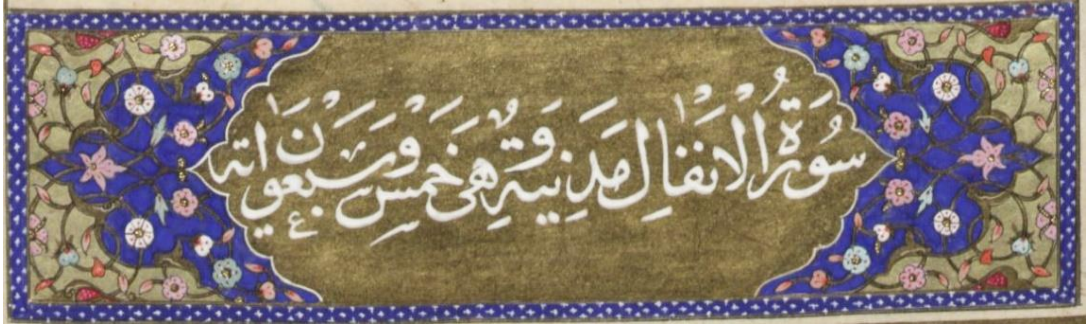 سُورَةُ الْاَنْفَالِ مَدَنِيَّةٌ وَهِيَ خَمْسٌ وَسَبْعُونَ اٰيَة